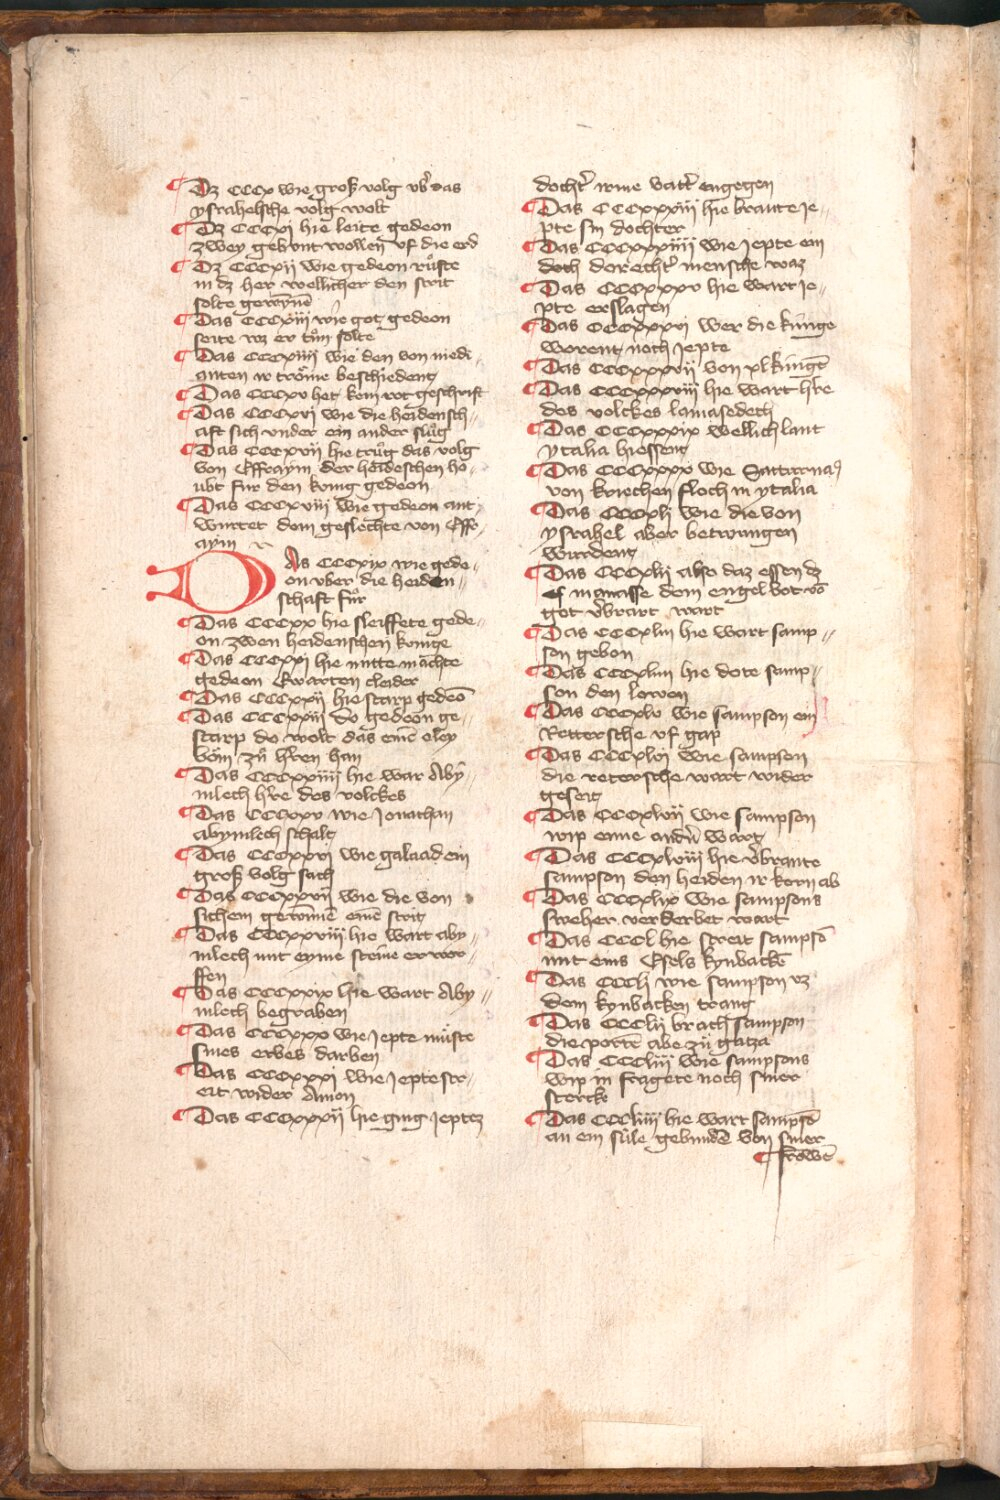 Dz CCCx wie groß volg vb͛ das
ysrahelsche volg wolt
Dz CCCxi hie leite gedeon
zwey gebunt wollen vf die erd
Dz CCCxii wie gedeon růfte
in dz her wellicher den strit
solte gewȳnē
Das CCCxiii wie got gedeon
seite wz er tůn solte
Das CCCxiiii wie den von medi-
anten ir trôme beschiedent
Das CCCxv het kein rot geschrift
Das CCCxvi wie die heidensch-
aft sich vnder ein ander slůg
Das CCCxvii hie trůg das volg
von Effraym der heideschen hô-
ubt fur den kvnig gedeon
Das CCCxviii wie gedeon ant-
wurtet dem geslechte von Effr-
aym
DAs CCCxix wie gede-
on vber die heiden-
schaft fůr
Das CCCxx hie sleiffete gede-
on zwen heidenschen kvnige
Das CCCxxi hie mitte machte
gedeon Ewarten cleider
Das CCCxxii hie starp gedeō
Das CCCxxiii do gedeon ge-
starp do wolt das eine oley
bôm zů h͛ren han
Das CCCxxiiii hie war Aby-
mlech h͛re des volckes
Das CCCxxv wie Jonathan
abymlech schalt
Das CCCxxvi wie galaad ein
groß volg sach
Das CCCxxvii wie die von
sichem gewinnē einē strit
Das CCCxxviii hie wart aby-
mlech mit eyme steine erwor-
ffen
Das CCCxxix hie wart Aby-
mlech begraben
Das CCCxxx wie Jepte můste
sines erbes darben
Das CCCxxxi wie Jepte str-
eit wider Amon
Das CCCxxxii hie ging Jeptez
docht͛ irme vatt͛ engegen
Das CCCxxxiii hie brante Je-
pte sin dochter
Das CCCxxxiiii wie Jepte ein
doch gerecht͛ mensche waz
Das CCCxxxv hie wart Je-
pte erslagen
Das CCCxxxvi wer die kunige
worent noch Jepte
Das CCCxxxvii von xl kungē
Das CCCxxxviii hie wart h͛re
des volckes lamasedech
Das CCCxxxix wellich lant
ytalia hiessent
Das CCCxxxx wie Satturnus
von kriechen floch in ytalia
Das CCCxli wie die von
ysrahel aber betwungen
wurdent
Das CCCxlii also daz essen dz
manasse dem engel bot vō
got v͛brant wart
Das CCCxliii hie wart samp-
son gebon
Das CCCxliiii hie dote samp-
son den lowen
Das CCCxlv wie sampson ein
Rettersche vf gap
Das CCCxlvi wie sampson
die retersche wart wider
geseit
Das CCCxlvii wie sampson
wip eime and͛n wart
Das CCCxlviii hie v͛brante
sampson den heiden ir korn ab
Das CCCxlix wie sampsons
sweher verderbet wart
Das CCCl hie streit sampsō
mit eins Esels kynbackē
Das CCCli wie sampson vz
dem kynbacken trang
Das CCClii brach sampson
die portē abe zů gatza
Das CCCliii wie sampsons
wip in fragete noch siner
stercke
Das CCCliiii hie wart sampsō
an ein sule gebundē von siner
frowē